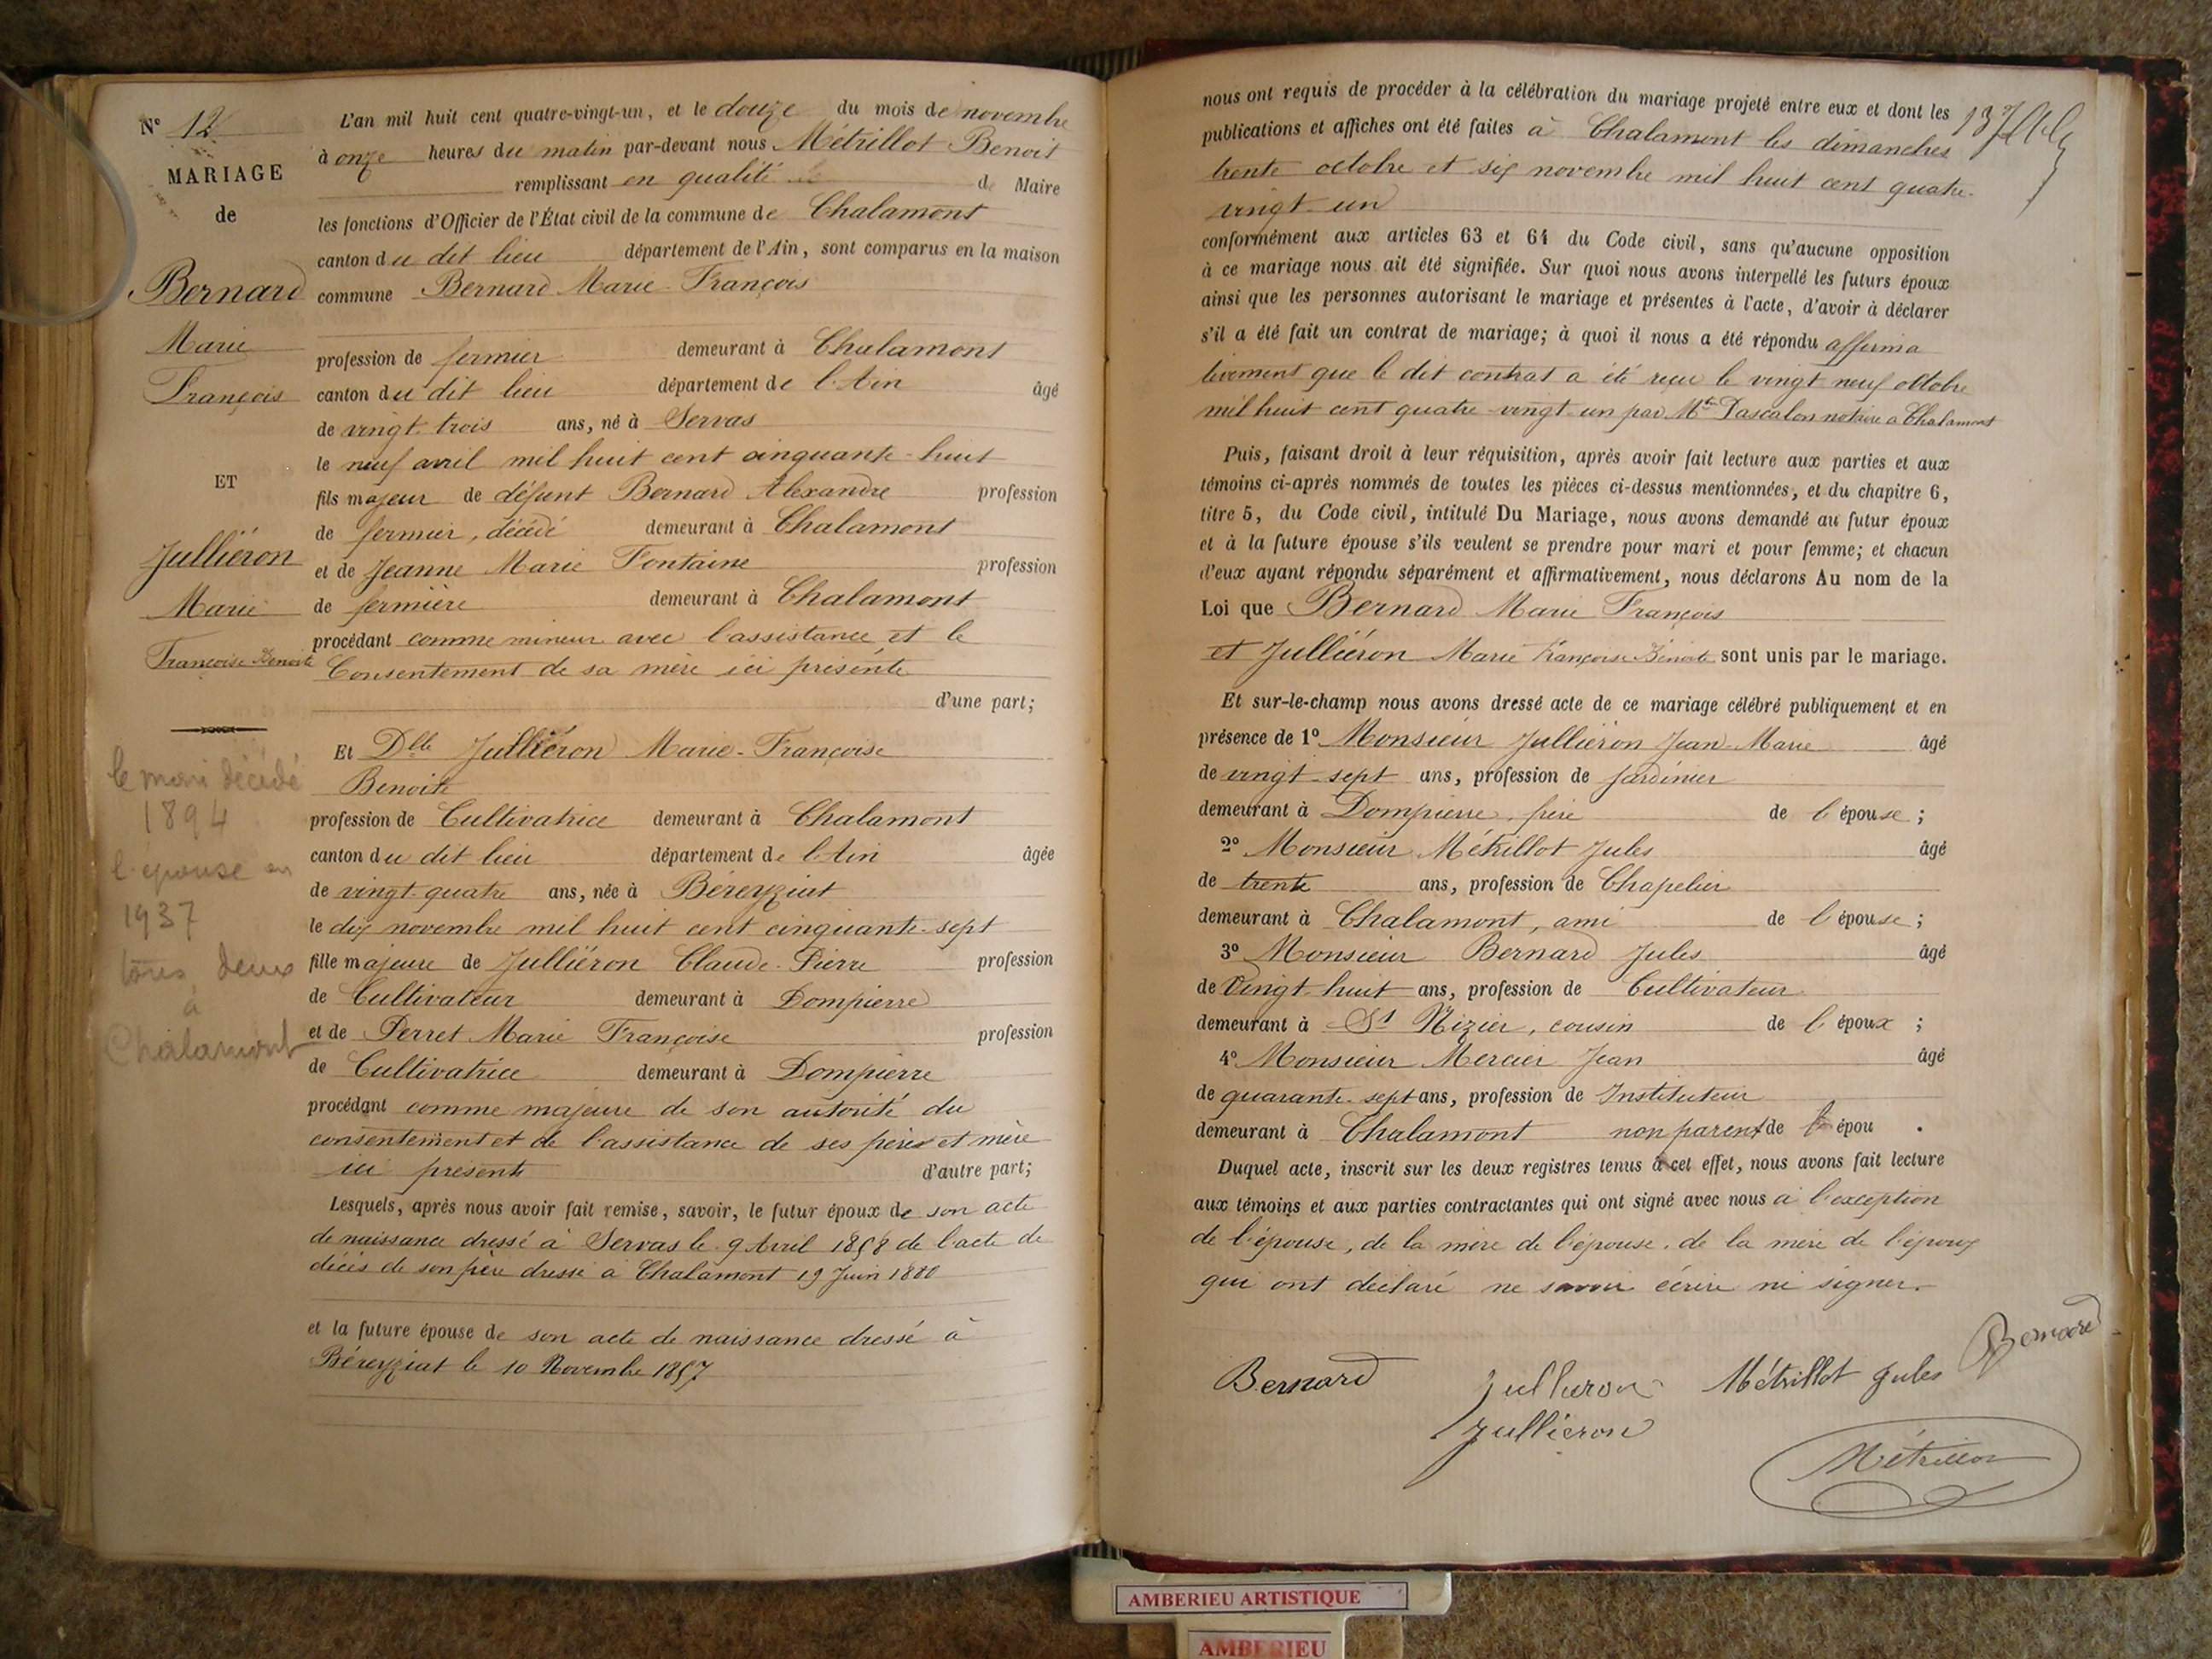 N° 12
MARIAGE
de
Bernard
Marie
François
ET
Julliéron
Marie
Françoise Benoite
le mari décédé
1894
l'épouse en
1937
tous deux
à
Chalamont
L'an mil huit cent quatre-vingt-un, et le douze du mois de novembre
à onze heures du matin par-devant nous Métrillot Benoit
remplissant en qualité de Maire
les fonctions d'Officier de l'État civil de la commune de Chalamont
canton du dit lieu département de l'Ain, sont comparus en la maison
commune Bernard Marie-François
profession de fermier demeurant à Chalamont
canton du dit lieu département de l'Ain âgé
de vingt trois ans, né à Servas
le neuf avril mil huit cent cinquante-huit
fils majeur de défunt Bernard Alexandre profession
de fermier, décédé demeurant à Chalamont
et de Jeanne Marie Fontaine profession
de fermière demeurant à Chalamont
procédant comme mineur avec l'assistance et le
Consentement de sa mère ici présente
d'une part;
Et Dlle Julliéron Marie-Françoise
Benoite
profession de Cultivatrice demeurant à Chalamont
canton du dit lieu département de l'Ain âgée
de vingt-quatre ans, née à Béreyziat
le dix novembre mil huit cent cinquante-sept
fille majeure de Julliéron Claude-Pierre profession
de Cultivateur demeurant à Dompierre
et de Perret Marie Françoise profession
de Cultivatrice demeurant à Dompierre
procédant comme majeure de son autorité du
consentement et de l'assistance de ses père et mère
ici présents d'autre part;
Lesquels, après nous avoir fait remise, savoir, le futur époux de son acte
de naissance dressé à Servas le 9 Avril 1858 de l'acte de
décès de son père dressé à Chalamont 19 Juin 1880
et la future épouse de son acte de naissance dressé à
Béreyziat le 10 Novembre 1857
nous ont requis de procéder à la célébration du mariage projeté entre eux et dont les
publications et affiches ont été faites à Chalamont les dimanches
trente octobre et six novembre mil huit cent quatre-
vingt-un
conformément aux articles 63 et 64 du Code civil, sans qu'aucune opposition
à ce mariage nous ait été signifiée. Sur quoi nous avons interpellé les futurs époux
ainsi que les personnes autorisant le mariage et présentes à l'acte, d'avoir à déclarer
s'il a été fait un contrat de mariage; à quoi il nous a été répondu affirma
tivement que le dit contrat a été reçu le vingt neuf octobre
mil huit cent quatre-vingt-un par Me Pascalon notaire à Chalamont
Puis, faisant droit à leur réquisition, après avoir fait lecture aux parties et aux
témoins ci-après nommés de toutes les pièces ci-dessus mentionnées, et du chapitre 6,
titre 5, du Code civil, intitulé Du Mariage, nous avons demandé au futur époux
et à la future épouse s'ils veulent se prendre pour mari et pour femme; et chacun
d'eux ayant répondu séparément et affirmativement, nous déclarons Au nom de la
Loi que Bernard Marie François
et Julliéron Marie Françoise Benoite sont unis par le mariage.
Et sur-le-champ nous avons dressé acte de ce mariage célébré publiquement et en
présence de 1° Monsieur Julliéron Jean-Marie âgé
de vingt-sept ans, profession de Jardinier
demeurant à Dompierre, frère de l'épouse;
2° Monsieur Métrillot Jules âgé
de trente ans, profession de Chapelier
demeurant à Chalamont, ami de l'épouse;
3° Monsieur Bernard Jules âgé
de Vingt-huit ans, profession de Cultivateur
demeurant à St Nizier, cousin de l'époux;
4° Monsieur Mercier Jean âgé
de quarante-sept ans, profession de Instituteur
demeurant à Chalamont non parent de épou.
Duquel acte, inscrit sur les deux registres tenus à cet effet, nous avons fait lecture
aux témoins et aux parties contractantes qui ont signé avec nous à l'exception
de l'épouse, de la mère de l'épouse, de la mère de l'époux
qui ont déclaré ne savoir écrire ni signer.
Bernard Julliéron Métrillot Jules Bernard
Julliéron
Métrillot
AMBERIEU ARTISTIQUE
AMBERIEU